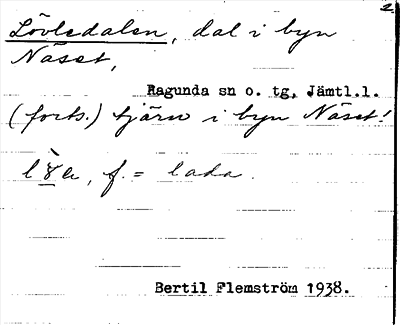 2
Lövledalen, dal i byn
Näset,
Ragunda sn o. tg, Jämtl.l.
(forts.) tjärn i byn Näset!
f. = lada.
Bertil Flemström 1938.